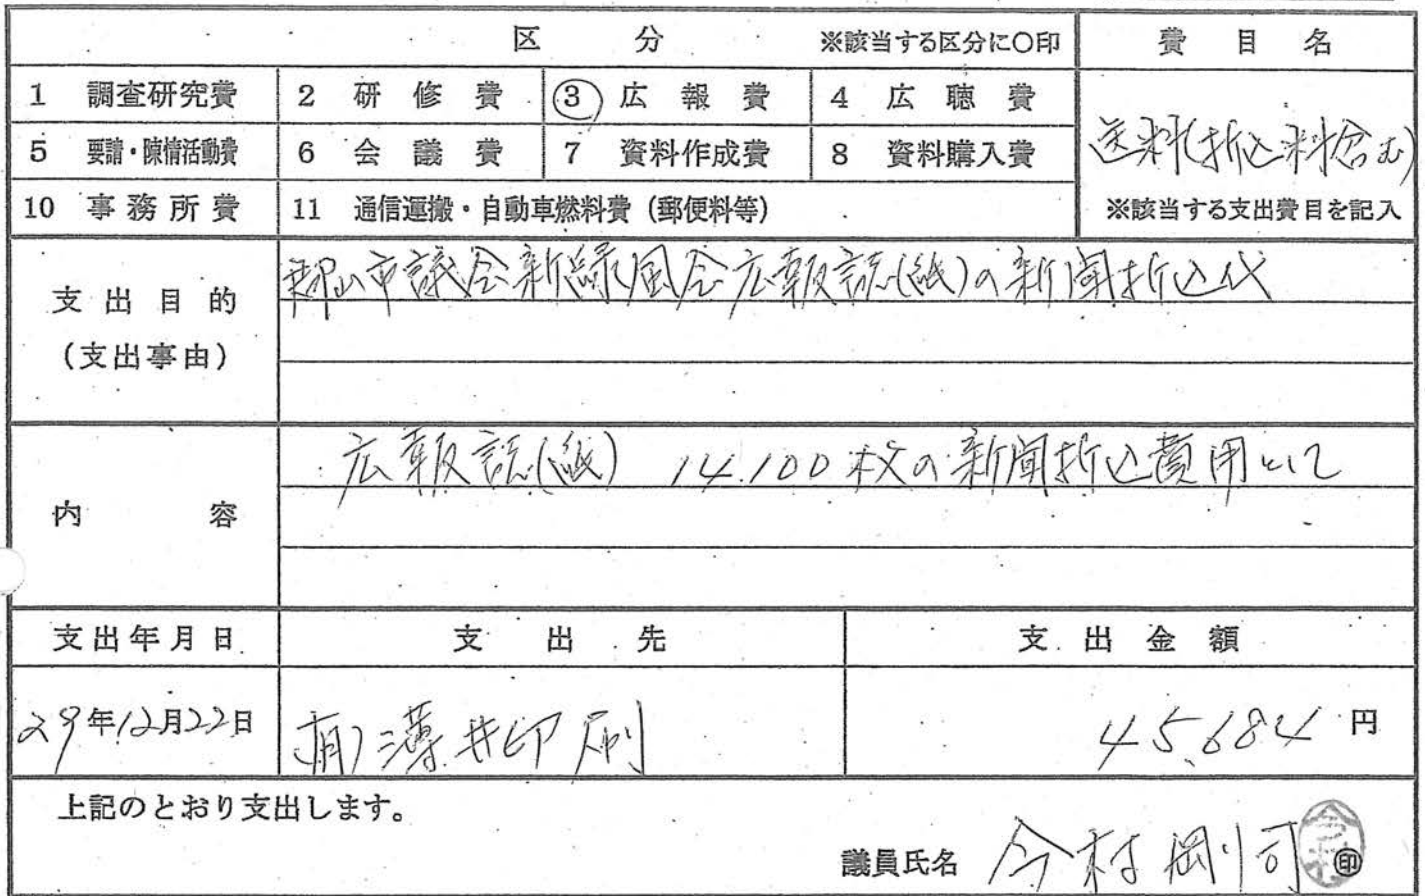 区 分 ※該当する区分に○印 費 目 名
1 調査研究費 2 研 修 費 ③ 広 報 費 4 広 聴 費
送料(折込料含む)
5 要請・陳情活動費 6 会 議 費 7 資料作成費 8 資料購入費
10 事務所費 11 通信運搬・自動車燃料費（郵便料等） ※該当する支出費目を記入
支出目的 郡山市議会新緑風会広報誌(紙)の新聞折込代
（支出事由）
広報誌(紙) 14,100枚の新聞折込費用として
内 容
支出年月日 支 出 先 支 出 金 額
29年12月22日 (有)薄井印刷 45,684円
上記のとおり支出します。
議員氏名 今村剛司 ㊞
今村